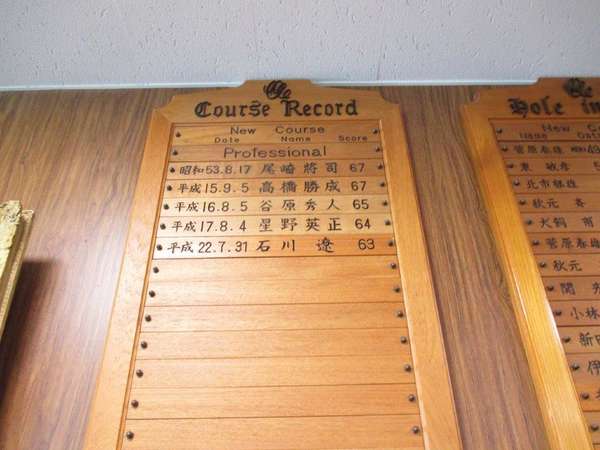 Course Record
New Course
Date Name Score
Professional
昭和53.8.17 尾崎將司 67
平成15.9.5 高橋勝成 67
平成16.8.5 谷原秀人 65
平成17.8.4 星野英正 64
平成22.7.31 石川遼 63
Hole in
New Co
Name Dat
菅原春雄
東敏彦
北市雄
秋元
犬飼甫
菅原春雄
秋元
関
小林
新田
伊